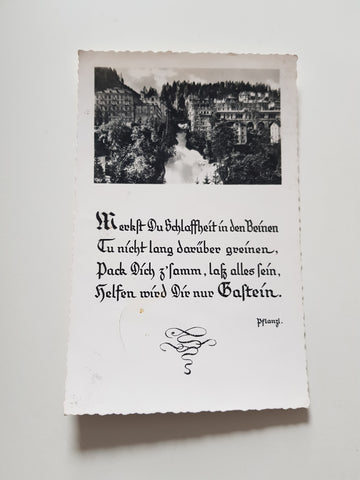 Merkst Du Schlaffheit in den Beinen
Tu nicht lang darüber greinen,
Pack Dich z'samm, laß alles sein,
Helfen wird Dir nur Gastein.
Pflanzl.